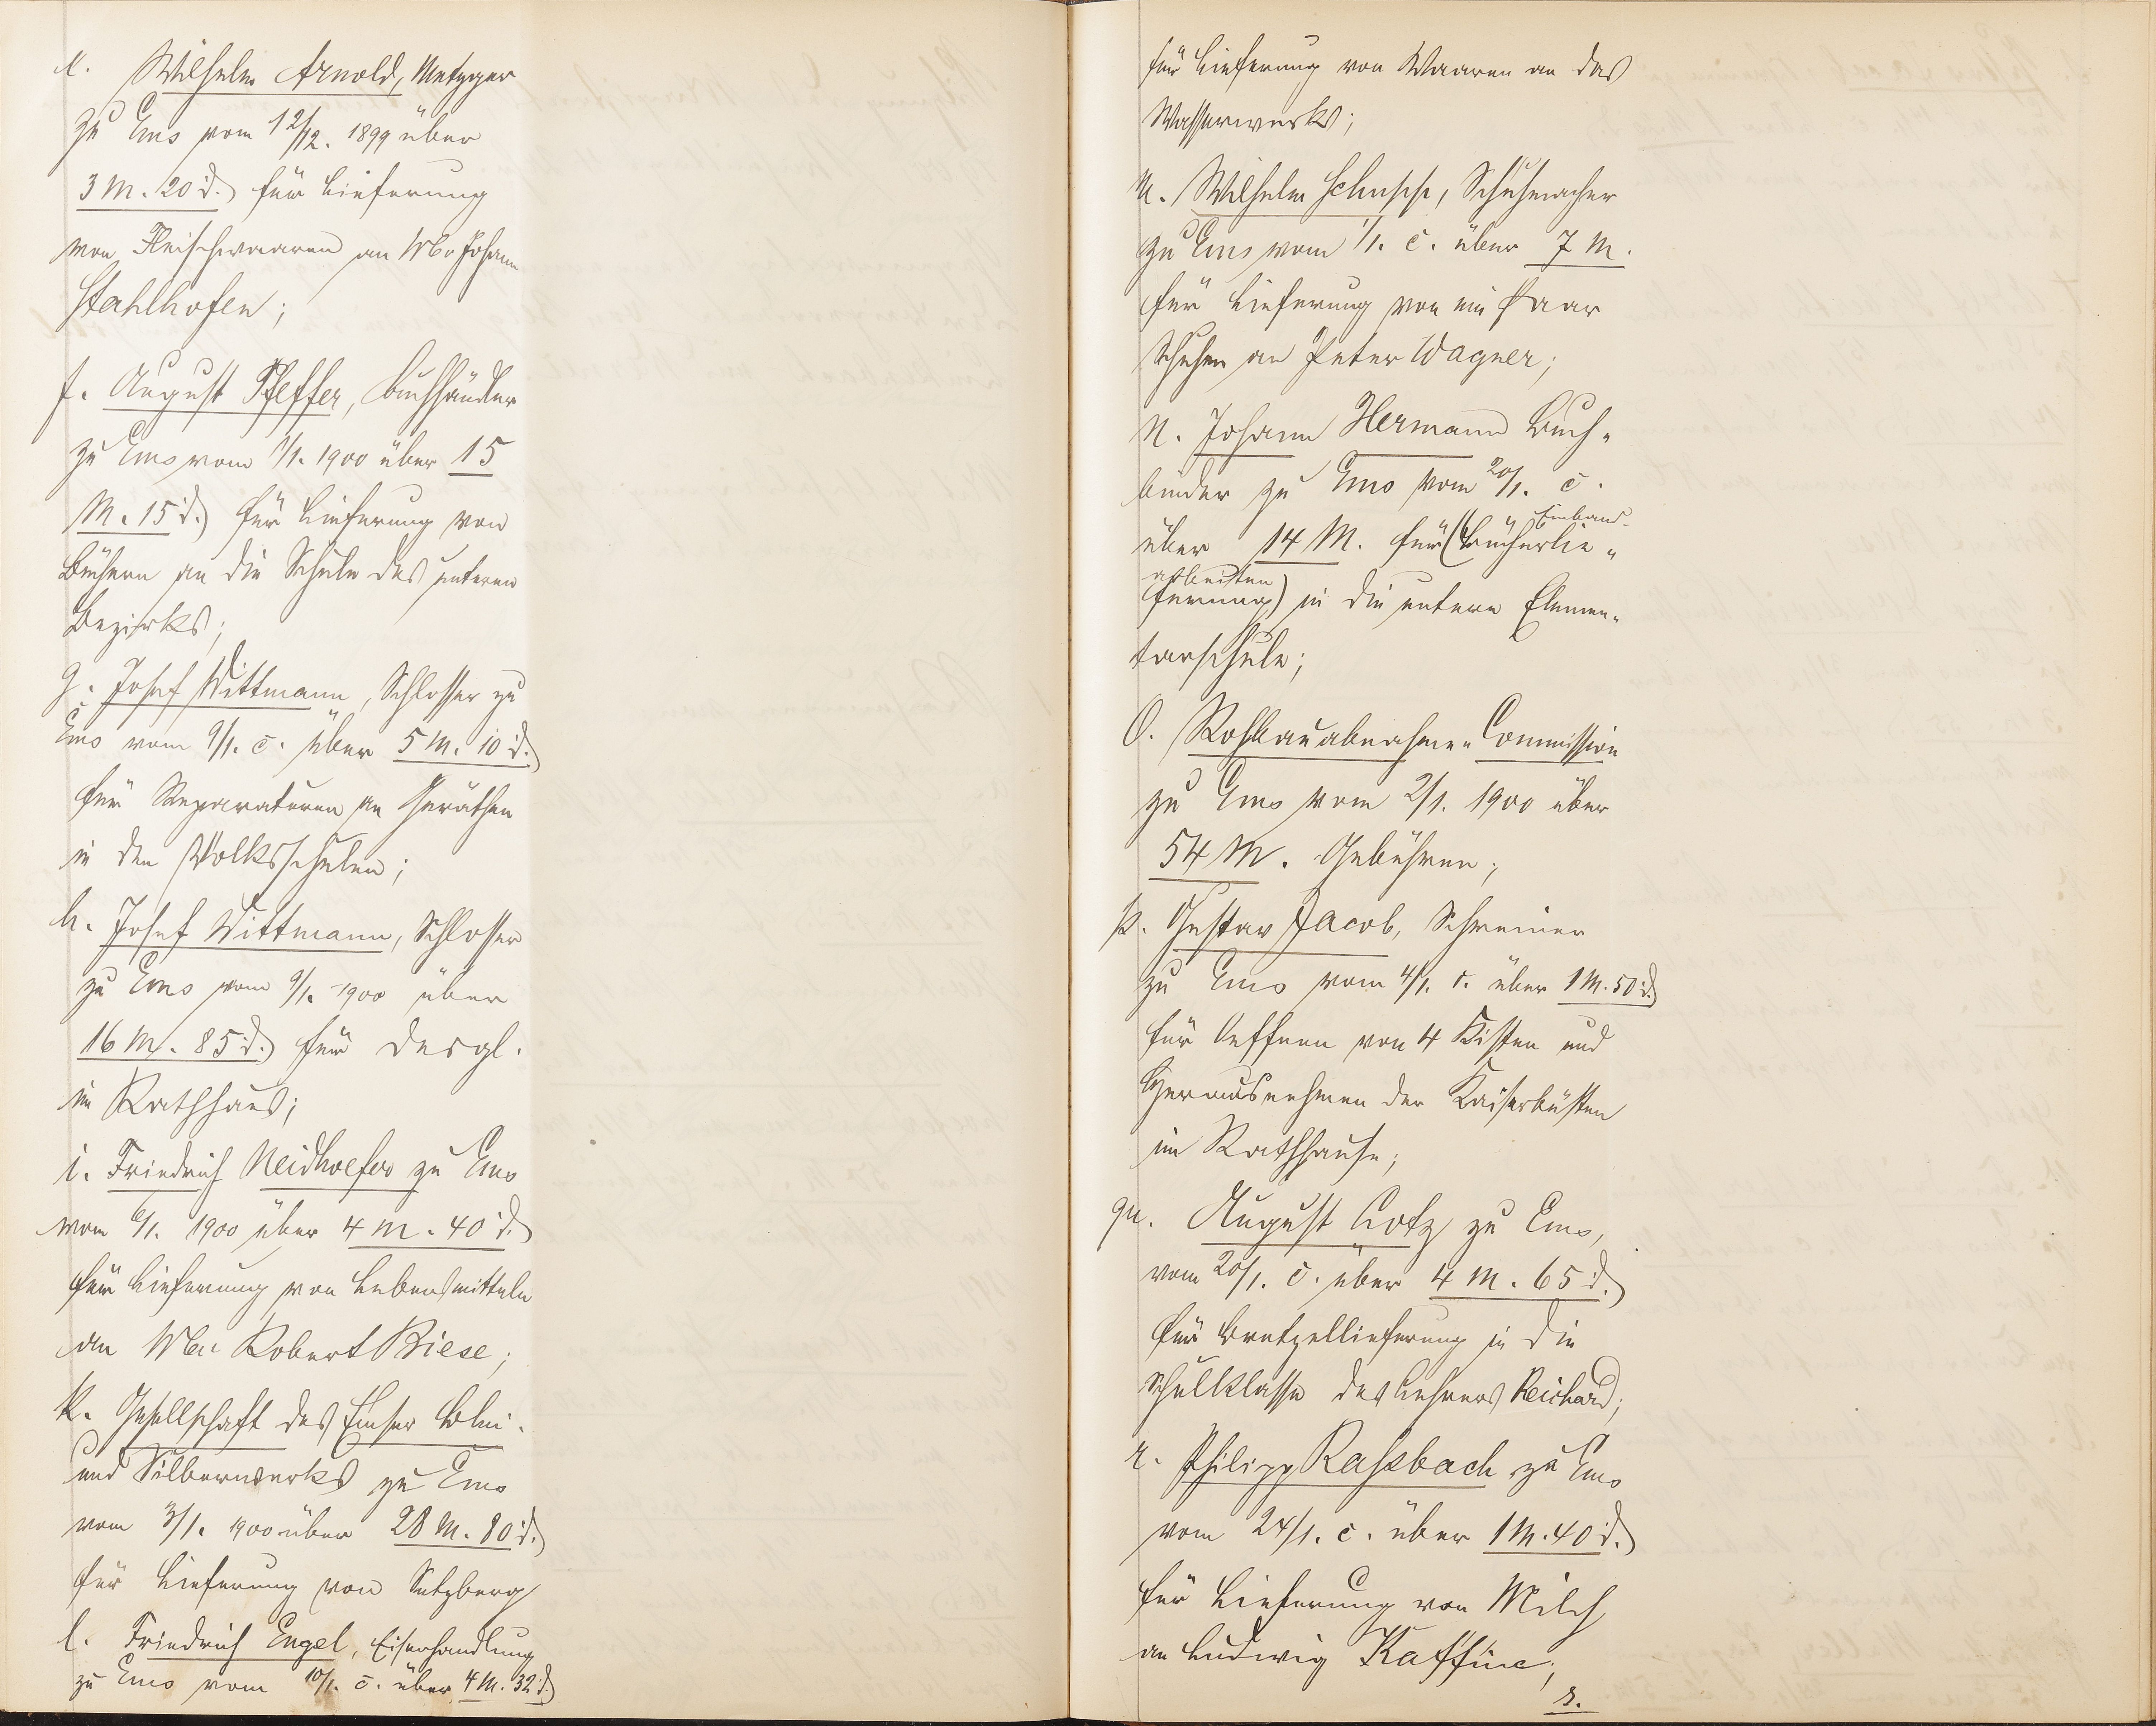 e. Wilhelm Arnold, Metzger
zu Ems vom 12/12. 1899 über
3 M. 20 d. für Lieferung
von Fleischwaaren an Johann
Stahlhofen;
f. August Pfeffer, Buchhändler
zu Ems vom 1/1. 1900 über 15
M. 15 d. für Lieferung von
Büchern an die Schule des unteren
Bezirks;
g. Josef Wittmann, Schlosser zu
Ems vom 9/1. c. über 5 M. 10 d.
für Reparaturen an Geräthen
in den Volksschulen;
h. Josef Wittmann, Schlosser
zu Ems vom 9/1. 1900 über
16 M. 85 d. für desgl.
im Rathhaus;
i. Friedrich Neidhoefer zu Ems
vom 6/1. 1900 über 4 M. 40 d.
für Lieferung von Lebensmitteln
an Robert Biese;
k. Gesellschaft des Emser Blei-
und Silberwerks zu Ems
vom 3/1. 1900 über 28 M. 80 d.
für Lieferung von Setzberg
l. Friedrich Engel, Eisenhandlung
zu Ems vom 10/1. c. über 4 M. 32 d.
für Lieferung von Waaren an das
Wasserwerks;
m. Wilhelm, Schuhmacher
zu Ems vom 1/1. c. über 7 M.
für Lieferung von ein Paar
Schuhen an Peter Wagner;
n. Johann Hermann Buch-
binder zu Ems vom 20/1. c.
Einband-
über 14 M. für (Bücherlie-
arbeiten
ferung) in die untere Elemen-
tarschule;
o. Rohbauabnahme-Commission
zu Ems vom 2/1. 1900 über
54 M. Gebühren;
p. Gustav Jacob, Schreiner
zu Ems vom 4/1. c. über 1 M. 50 d.
für Oeffnen von 4 Kisten und
Herausnehmen der Kaiserbüsten
im Rathhause;
qu. August Lotz zu Ems,
vom 20/1. c. über 4 M. 65 d.
für Bretzellieferung in die
Schulklasse des Lehrers Reichard;
r. Philipp Raßbach zu Ems
vom 24/1. c. über 1 M. 40 d.
für Lieferung von Milch
an Ludwig Kaffine;
s.